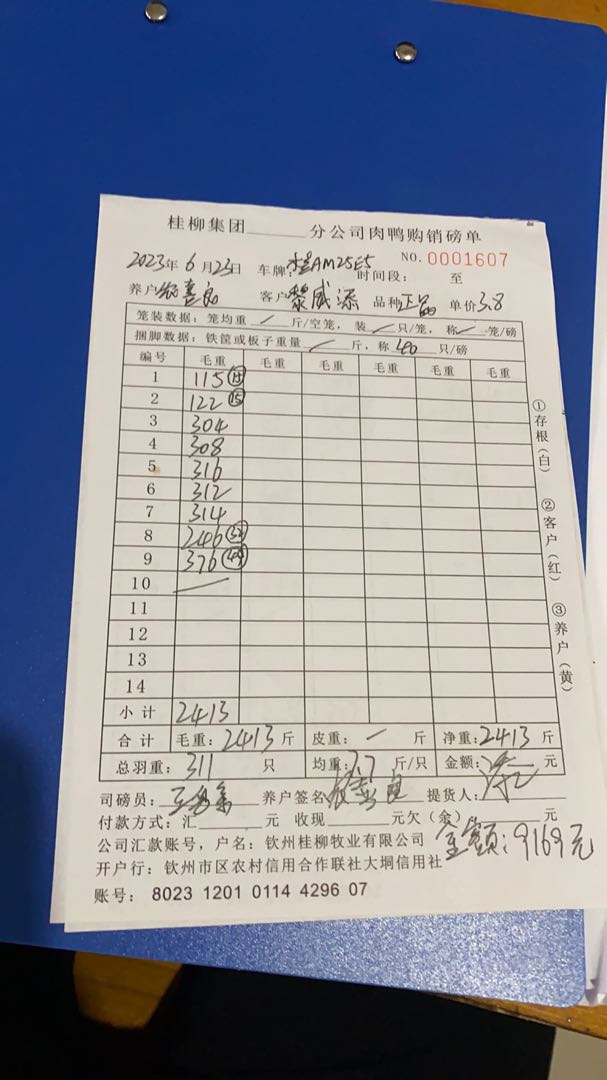 桂柳集团______分公司肉鸭购销磅单
NO.0001607
2023年6月23日 车牌:桂AM25E5 时间段: 至
养户 客户黎威添 品种正品 单价3.8
笼装数据:笼均重 / 斤/空笼,装 / 只/笼,称 / 笼/磅
捆脚数据:铁筐或板子重量 / 斤,称 40 只/磅
编号 毛重 毛重 毛重 毛重 毛重 毛重
1 115
2 122 15
3 304
4 308
5 316
6 312
7 314
8 246
9 376
10 /
11
12
13
14
小计 2413
合计 毛重:2413斤 皮重: / 斤 净重:2413斤
总羽重:311 只 均重:7.7斤/只 金额: 元
司磅员: 养户签名 提货人:
付款方式:汇______元 收现______元欠(余)______元
公司汇款账号,户名:钦州桂柳牧业有限公司 金额:9169元
开户行:钦州市区农村信用合作联社大垌信用社
账号:8023 1201 0114 4296 07
①存根(白)
②客户(红)
③养户(黄)